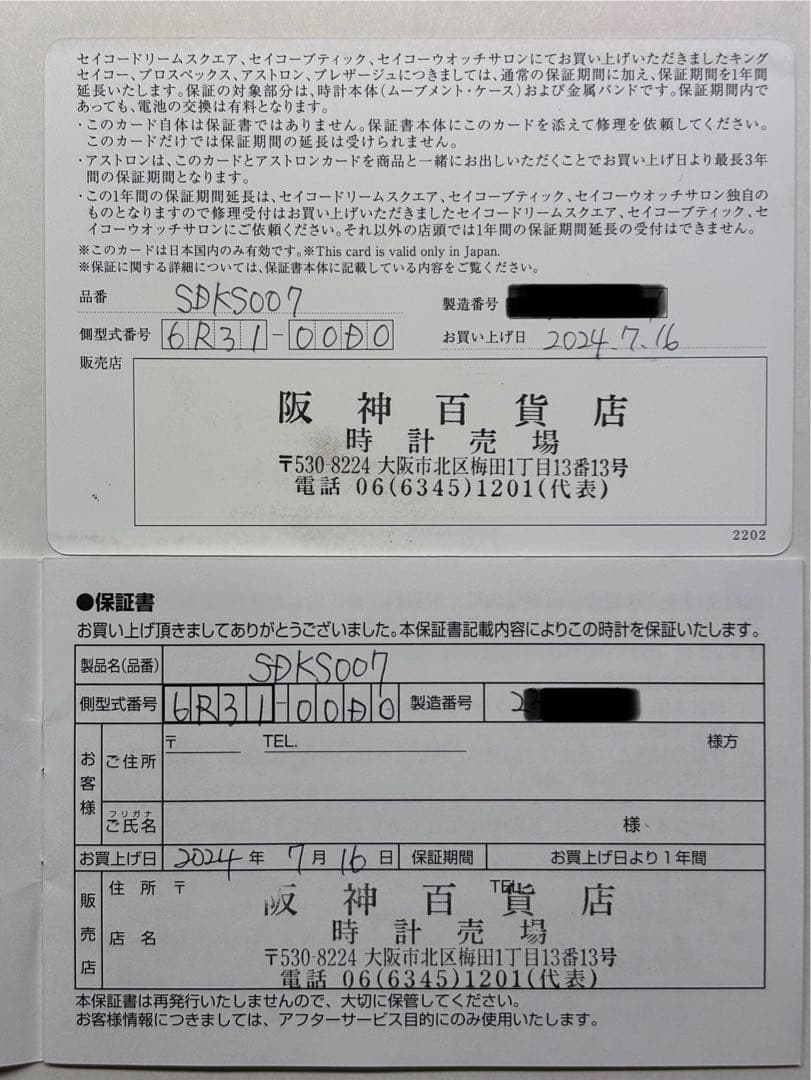 セイコードリームスクエア、セイコーブティック、セイコーウオッチサロンにてお買い上げいただきましたキング
セイコー、プロスペックス、アストロン、プレザージュにつきましては、通常の保証期間に加え、保証期間を1年間
延長いたします。保証の対象部分は、時計本体（ムーブメント・ケース）および金属バンドです。保証期間内で
あっても、電池の交換は有料となります。
・このカード自体は保証書ではありません。保証書本体にこのカードを添えて修理を依頼してください。
このカードだけでは保証期間の延長は受けられません。
・アストロンは、このカードとアストロンカードを商品と一緒にお出しいただくことでお買い上げ日より最長3年
間の保証期間となります。
・この1年間の保証期間延長は、セイコードリームスクエア、セイコーブティック、セイコーウオッチサロン独自の
ものとなりますので修理受付はお買い上げいただきましたセイコードリームスクエア、セイコーブティック、セ
イコーウオッチサロンにご依頼ください。それ以外の店頭では1年間の保証期間延長の受付はできません。
※このカードは日本国内のみ有効です。※This card is valid only in Japan.
※保証に関する詳細については、保証書本体に記載している内容をご覧ください。
品番 SDKS007 製造番号
側型式番号 6R31-00D0 お買い上げ日 2024.7.16
販売店
阪神百貨店
時計売場
〒530-8224 大阪市北区梅田1丁目13番13号
電話 06(6345)1201(代表)
2202
●保証書
お買い上げ頂きましてありがとうございました。本保証書記載内容によりこの時計を保証いたします。
製品名(品番) SDKS007
側型式番号 6R31-00D0 製造番号 2
お客様 ご住所 〒 TEL. 様方
フリガナ
ご氏名 様
お買上げ日 2024年 7月 16日 保証期間 お買上げ日より1年間
販売店 住所 〒 TEL.
店名
阪神百貨店
時計売場
〒530-8224 大阪市北区梅田1丁目13番13号
電話 06(6345)1201(代表)
本保証書は再発行いたしませんので、大切に保管してください。
お客様情報につきましては、アフターサービス目的にのみ使用いたします。